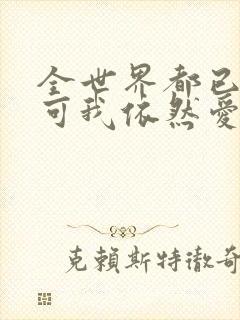 全世界都已
可我依然愛
克賴斯特徹奇